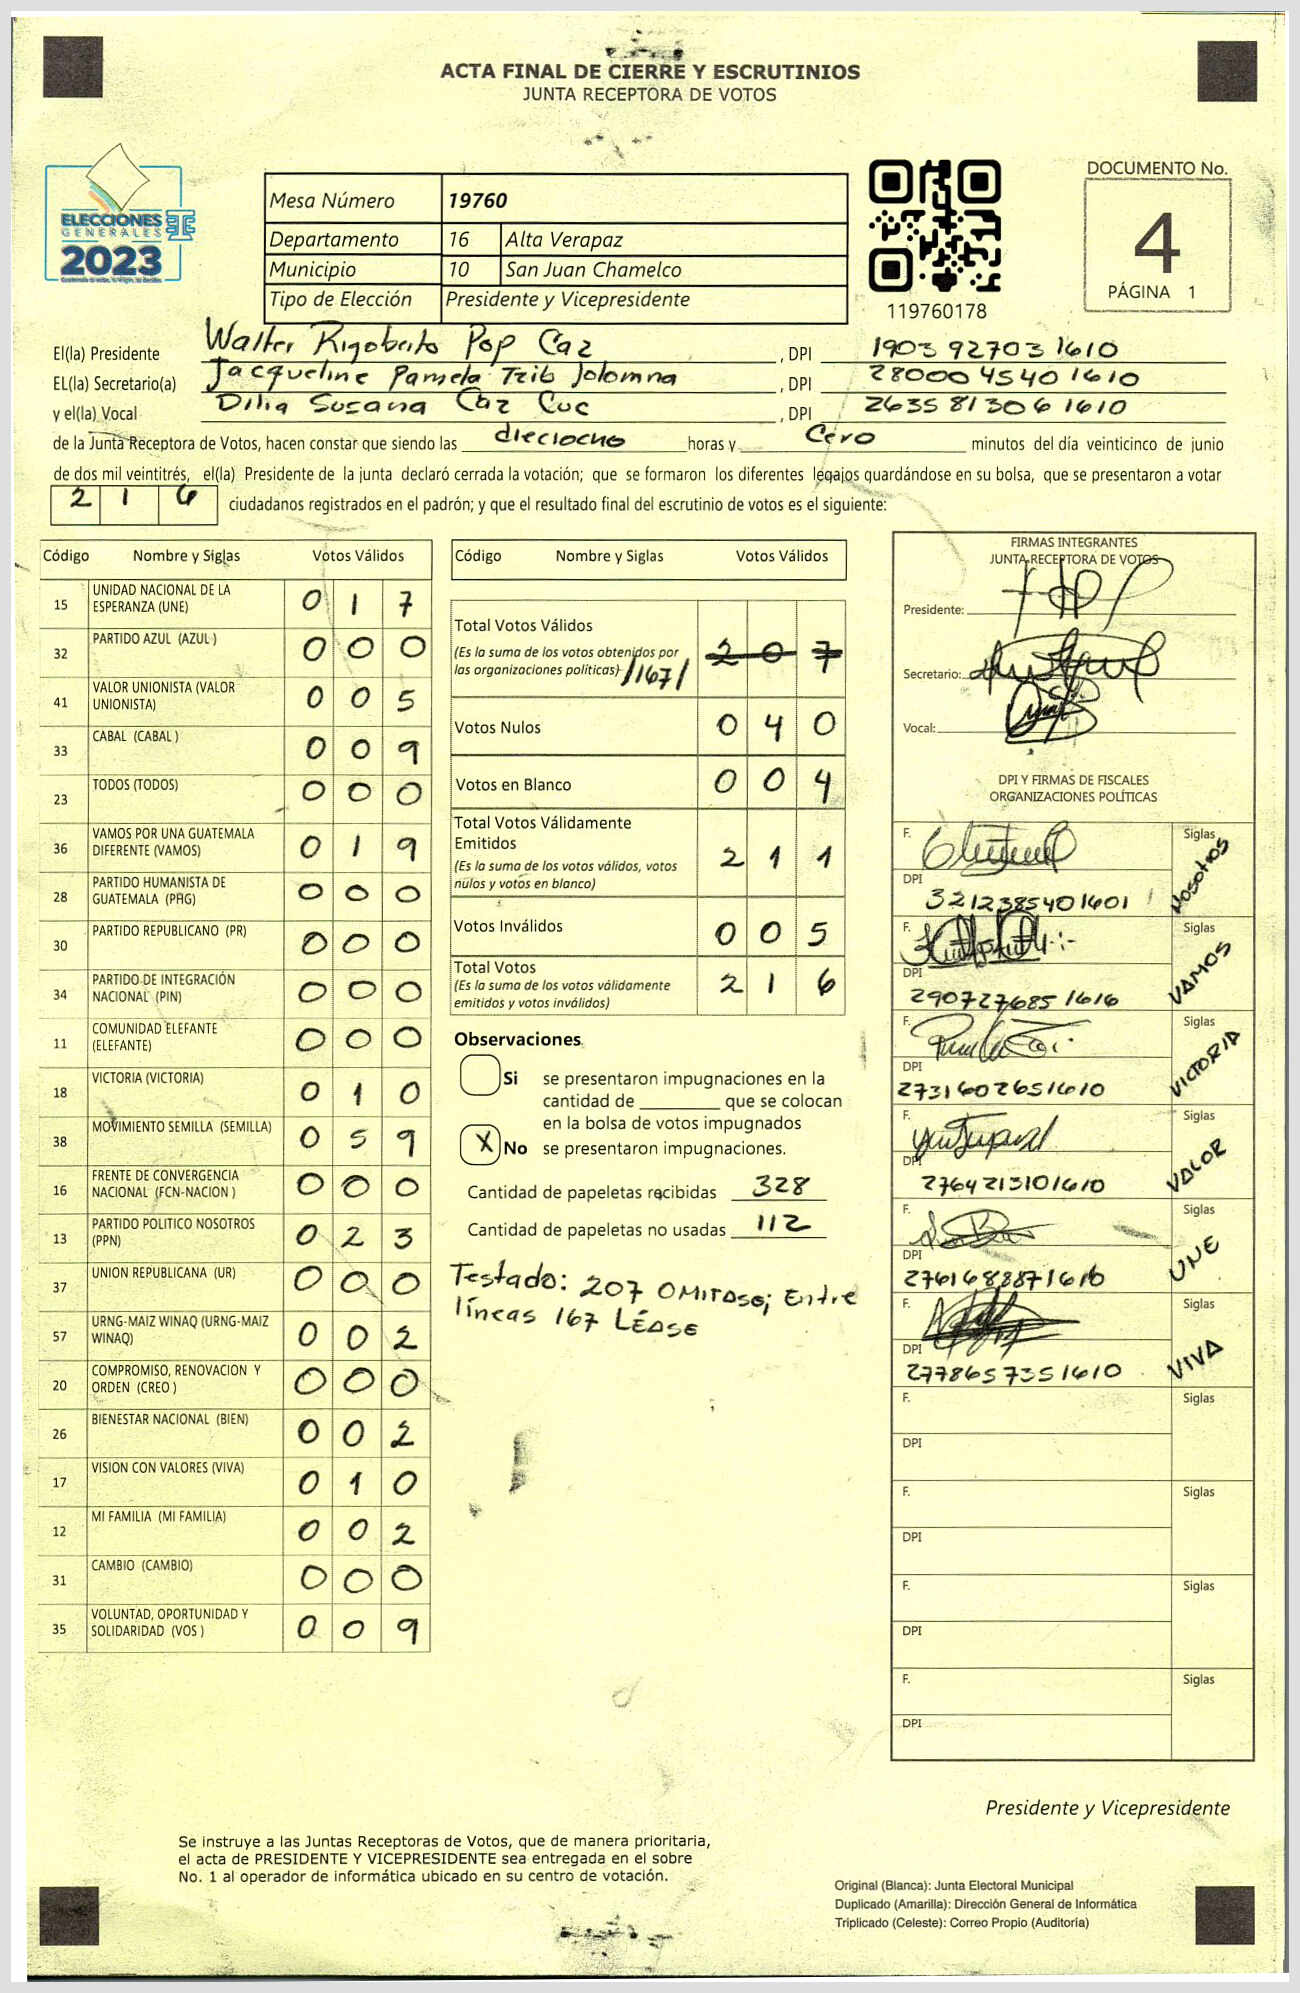 ACTA FINAL DE CIERRE Y ESCRUTINIOS
JUNTA RECEPTORA DE VOTOS
ELECCIONES
GENERALES
2023
Mesa Número 19760
Departamento 16 Alta Verapaz
Municipio 10 San Juan Chamelco
Tipo de Elección Presidente y Vicepresidente
119760178
DOCUMENTO No.
4
PÁGINA 1
El(la) Presidente Walter Rigoberto Pop Caz , DPI 1903 92703 1610
EL(la) Secretario(a) Jacqueline Pamela Tzib Jolomna , DPI 28000 4540 1610
y el(la) Vocal Dilia Susana Caz Cuc , DPI 2635 81306 1610
de la Junta Receptora de Votos, hacen constar que siendo las dieciocho horas y Cero minutos del día veinticinco de junio
de dos mil veintitrés, el(la) Presidente de la junta declaró cerrada la votación; que se formaron los diferentes legajos guardándose en su bolsa, que se presentaron a votar
2 1 6 ciudadanos registrados en el padrón; y que el resultado final del escrutinio de votos es el siguiente:
Código Nombre y Siglas Votos Válidos
15 UNIDAD NACIONAL DE LA ESPERANZA (UNE) 0 1 7
32 PARTIDO AZUL (AZUL ) 0 0 0
41 VALOR UNIONISTA (VALOR UNIONISTA) 0 0 5
33 CABAL (CABAL ) 0 0 9
23 TODOS (TODOS) 0 0 0
36 VAMOS POR UNA GUATEMALA DIFERENTE (VAMOS) 0 1 9
28 PARTIDO HUMANISTA DE GUATEMALA (PHG) 0 0 0
30 PARTIDO REPUBLICANO (PR) 0 0 0
34 PARTIDO DE INTEGRACIÓN NACIONAL (PIN) 0 0 0
11 COMUNIDAD ELEFANTE (ELEFANTE) 0 0 0
18 VICTORIA (VICTORIA) 0 1 0
38 MOVIMIENTO SEMILLA (SEMILLA) 0 5 9
16 FRENTE DE CONVERGENCIA NACIONAL (FCN-NACION ) 0 0 0
13 PARTIDO POLITICO NOSOTROS (PPN) 0 2 3
37 UNION REPUBLICANA (UR) 0 0 0
57 URNG-MAIZ WINAQ (URNG-MAIZ WINAQ) 0 0 2
20 COMPROMISO, RENOVACION Y ORDEN (CREO ) 0 0 0
26 BIENESTAR NACIONAL (BIEN) 0 0 2
17 VISION CON VALORES (VIVA) 0 1 0
12 MI FAMILIA (MI FAMILIA) 0 0 2
31 CAMBIO (CAMBIO) 0 0 0
35 VOLUNTAD, OPORTUNIDAD Y SOLIDARIDAD (VOS ) 0 0 9
Código Nombre y Siglas Votos Válidos
Total Votos Válidos
(Es la suma de los votos obtenidos por
las organizaciones políticas) //167// 2 0 7
Votos Nulos 0 4 0
Votos en Blanco 0 0 4
Total Votos Válidamente
Emitidos
(Es la suma de los votos válidos, votos
nulos y votos en blanco) 2 1 1
Votos Inválidos 0 0 5
Total Votos
(Es la suma de los votos válidamente
emitidos y votos inválidos) 2 1 6
Observaciones
Si se presentaron impugnaciones en la
cantidad de que se colocan
en la bolsa de votos impugnados
X No se presentaron impugnaciones.
Cantidad de papeletas recibidas 328
Cantidad de papeletas no usadas 112
Testado: 207 OMITASE; Entre
líneas 167 LÉASE
FIRMAS INTEGRANTES
JUNTA RECEPTORA DE VOTOS
Presidente:
Secretario:
Vocal:
DPI Y FIRMAS DE FISCALES
ORGANIZACIONES POLÍTICAS
F. Siglas NOSOTROS
DPI 3212385401601
F. Siglas VAMOS
DPI 290727685 1616
F. Siglas VICTORIA
DPI 2731602651610
F. Siglas VALOR
DPI 2764213101610
F. Siglas UNE
DPI 2761688871610
F. Siglas VIVA
DPI 2778657351610
F. Siglas
DPI
F. Siglas
DPI
F. Siglas
DPI
F. Siglas
DPI
Presidente y Vicepresidente
Se instruye a las Juntas Receptoras de Votos, que de manera prioritaria,
el acta de PRESIDENTE Y VICEPRESIDENTE sea entregada en el sobre
No. 1 al operador de informática ubicado en su centro de votación.
Original (Blanca): Junta Electoral Municipal
Duplicado (Amarilla): Dirección General de Informática
Triplicado (Celeste): Correo Propio (Auditoría)